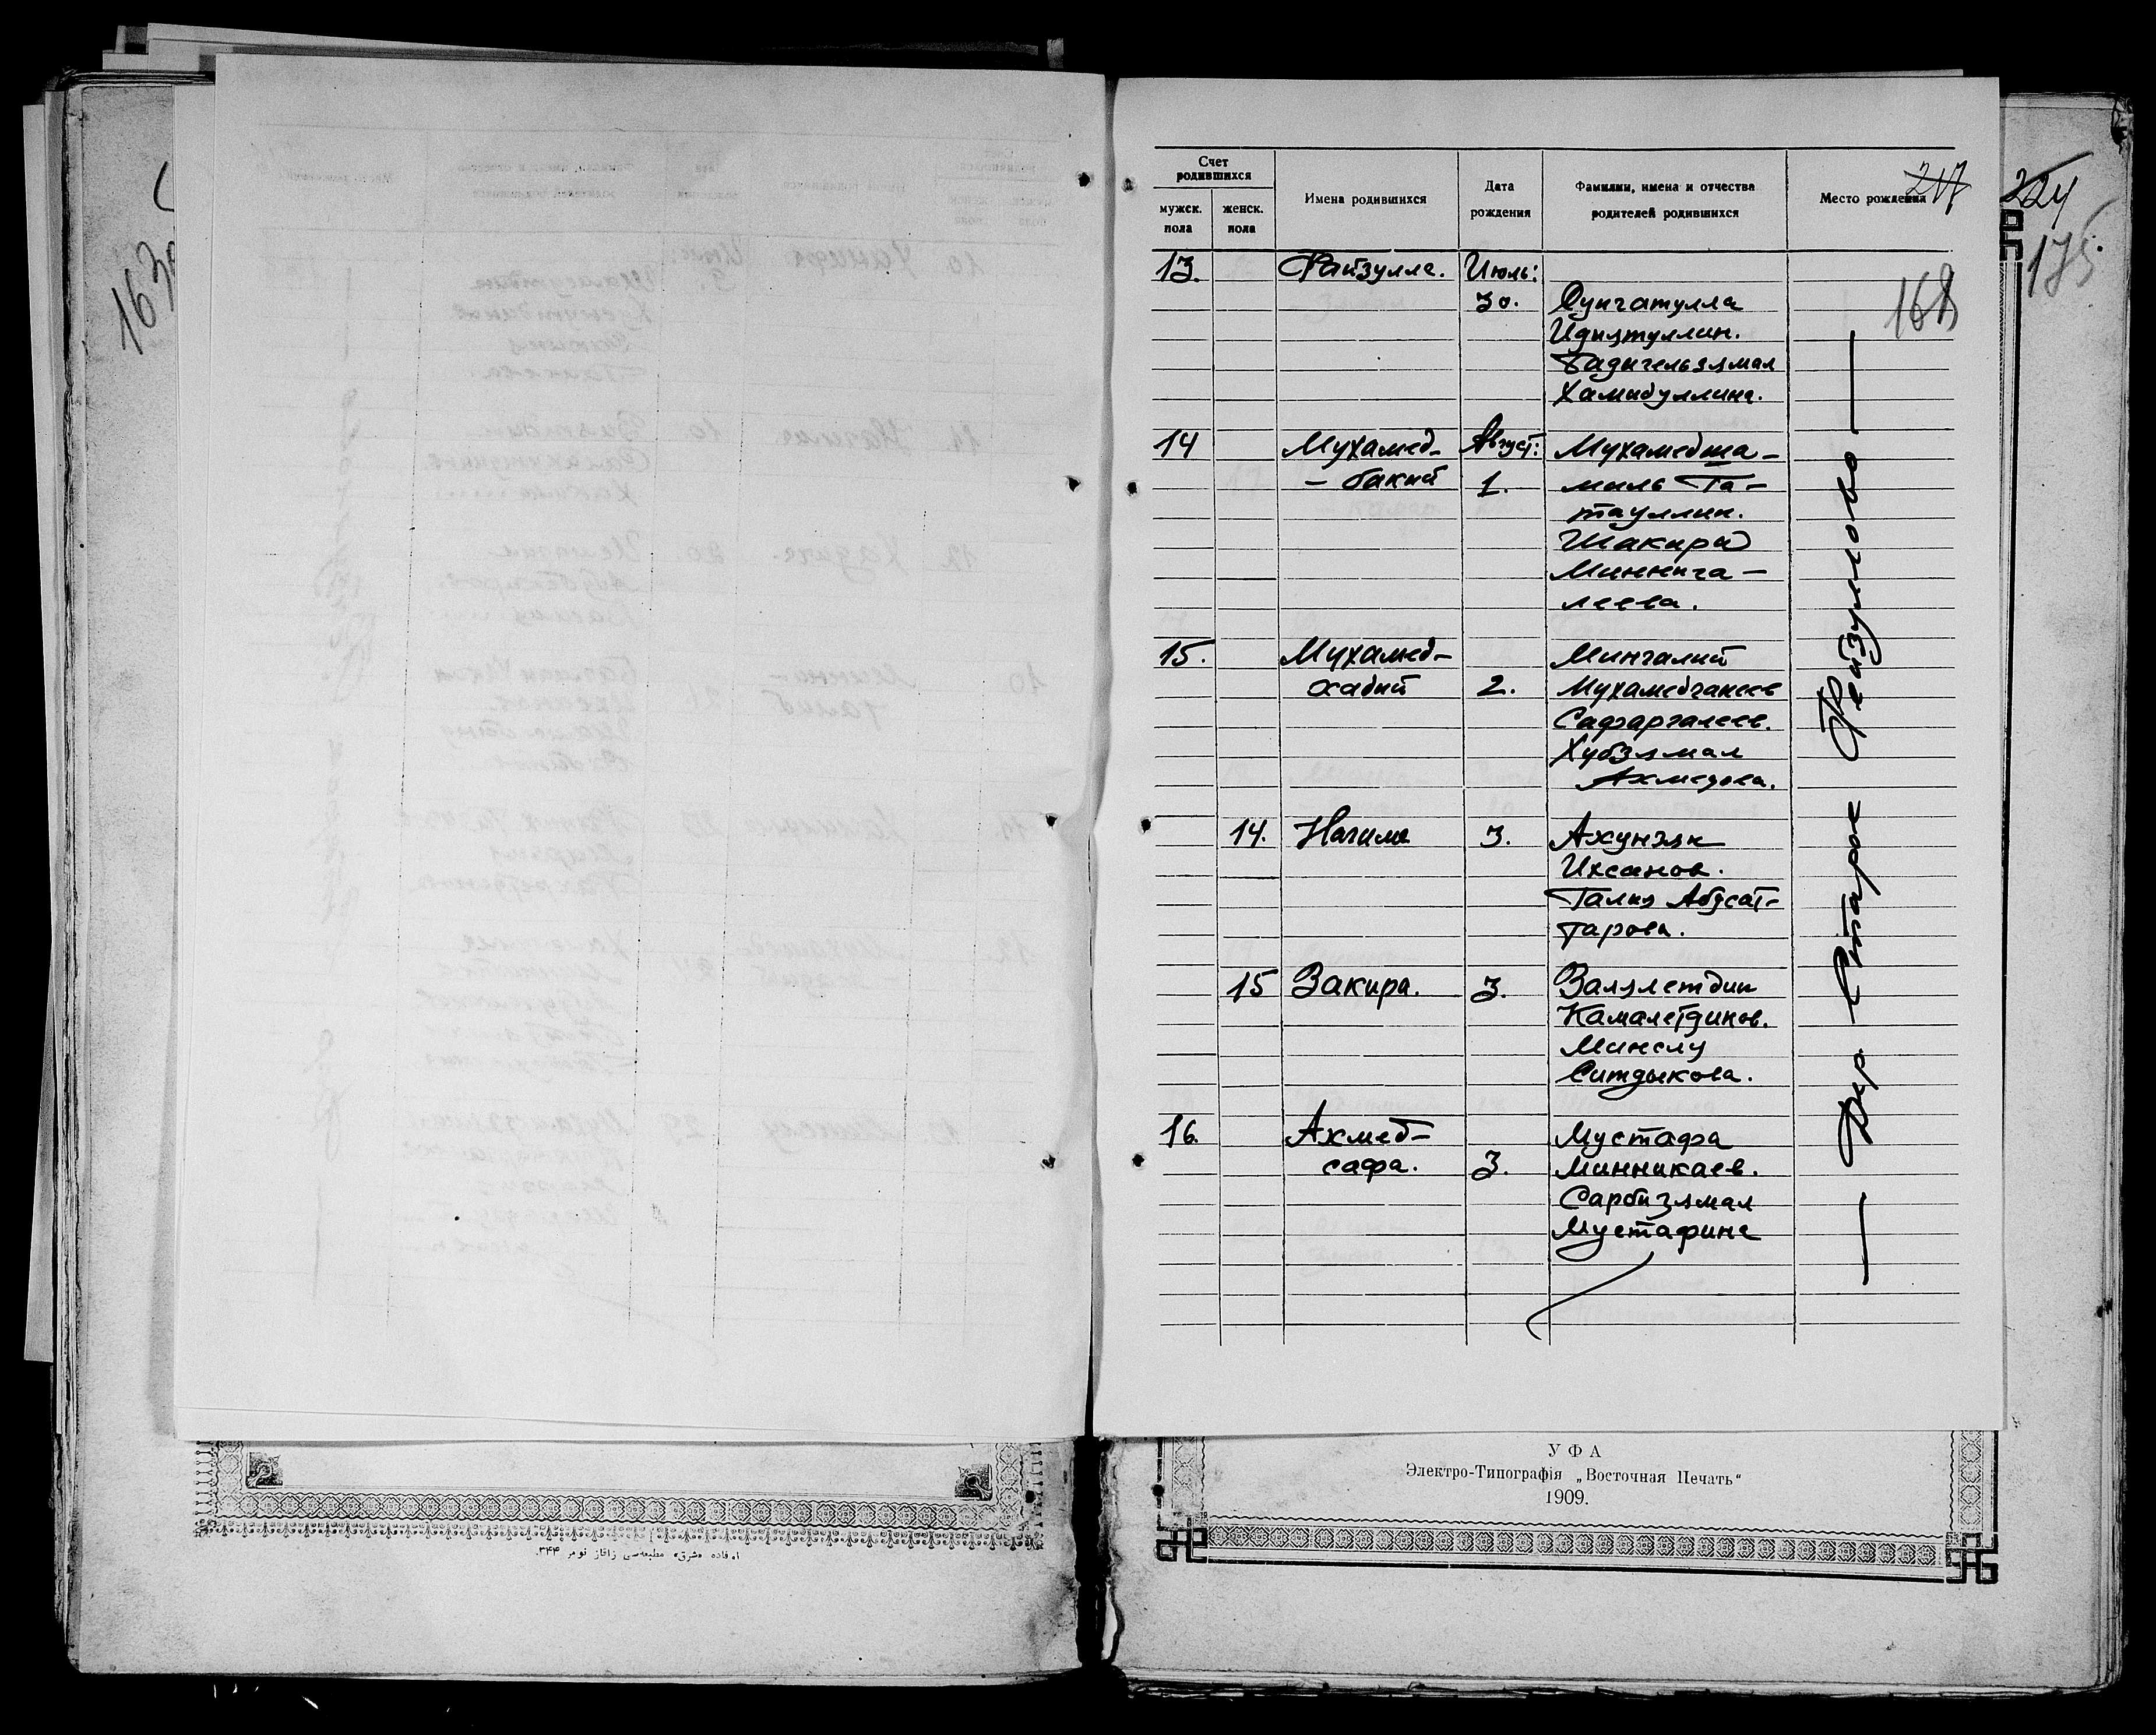 163
Счет родившихся
мужск. пола
женск. пола
Имена родившихся
Дата рождения
Фамилии, имена и отчества родителей родившихся
Место рождения
217
224
175
168
13. Файзулла. Июль:
30. Сунгатулла
Идиятуллин.
Бадигельзямал
Хамидуллина.
14 Мухамед- Август: Мухаметша-
- бакий 1. миль Га-
тауллин.
Шакира
Миннига-
леева.
15. Мухамед- Мингалий
хадий 2. Мухамедганеев
Сафаргалеев.
Хубзямал
Ахмедова.
14. Нагима 3. Ахунзян
Ихсанов.
Галия Абусат-
тарова.
15 Закира. 3. Залялетдин
Камалетдинов.
Минслу
Ситдыкова.
16. Ахмед- Мустафа
сафа. 3. Минникаев.
Сарбизямал
Мустафина
— Дер. Старое Фейзуллово —
УФА
Электро-Типографія „Восточная Печать“
1909.